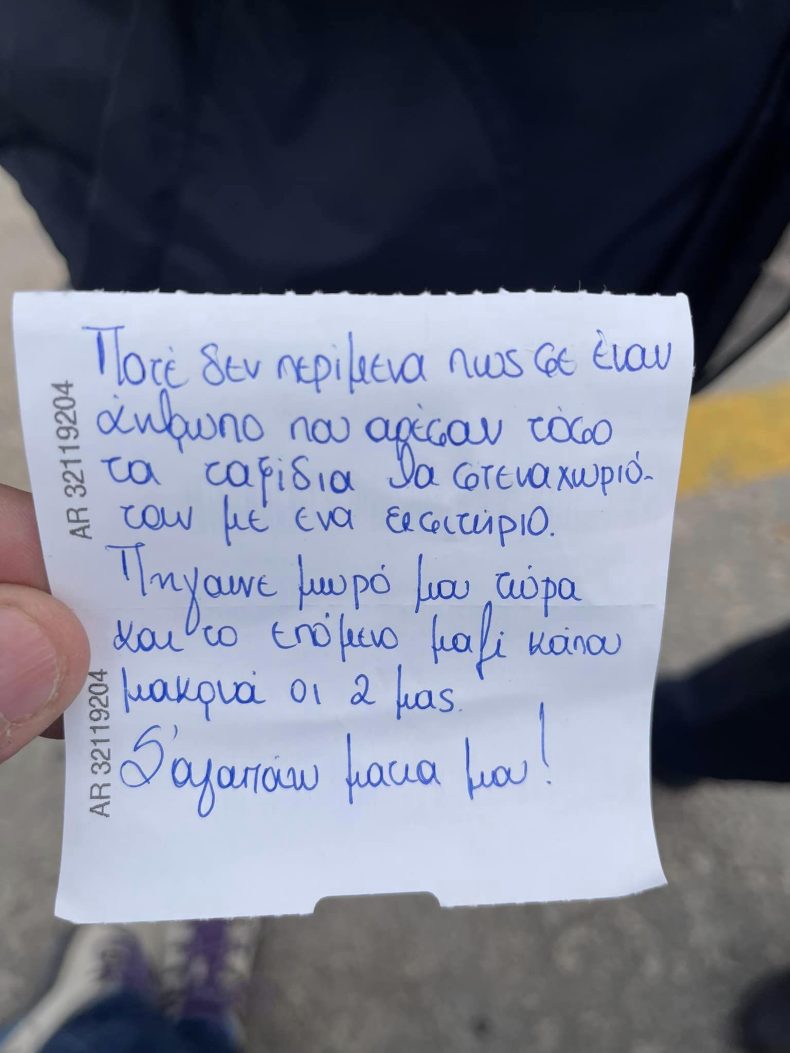 Ποτέ δεν περίμενα πως σε έναν
άνθρωπο που αρέσαν τόσο
τα ταξίδια θα στεναχωριό-
ταν με ενα εισιτήριο.
Πηγαινε μωρό μου τώρα
και το επόμενο μαζί κάπου
μακρυά οι 2 μας.
Σ'αγαπάω μακια μου!
AR 32119204
AR 32119204